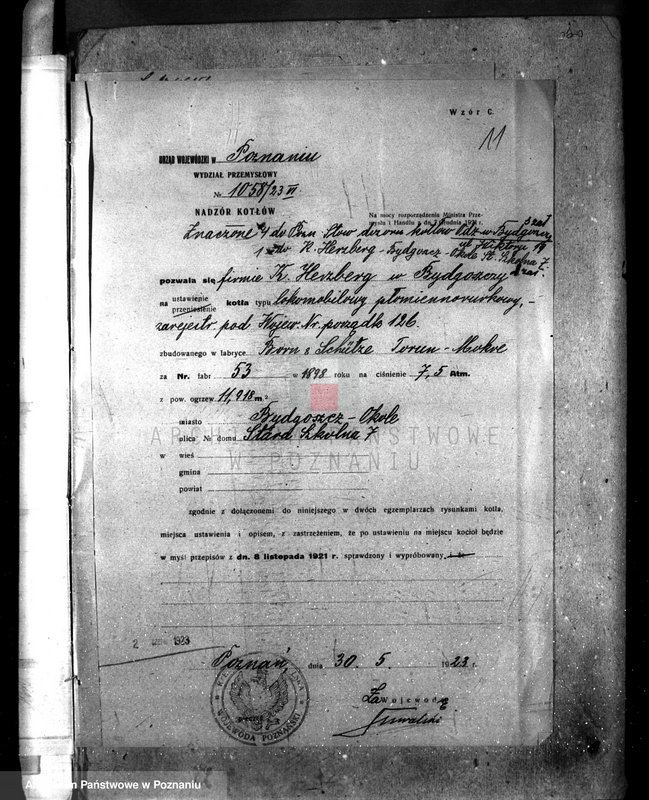 Wzór C.
11
URZĄD WOJEWÓDZKI w Poznaniu
WYDZIAŁ PRZEMYSŁOWY
№ 1058/23 VI.
NADZÓR KOTŁÓW
Na mocy rozporządzenia Ministra Prze-
mysłu i Handlu z dn. 3 grudnia 1921 r.
do Pozn. Stow dozoru kotłów Odz. w Bydgoszczy
ul
19
do K. Herzberg - Bydgoszcz - Okole St. Szkolna 7.
pozwala się firmie K. Herzberg w Bydgoszczy
na ustawienie przeniesienie kotła typu lokomobilowy płomiennorurkowy,
zarejestr. pod Wojew. Nr. porządk 126.
zbudowanego w fabryce Born & Schütze Toruń - Mokre
za Nr. fabr 53 w 1898 roku na ciśnienie 7,5 Atm.
z pow. ogrzew. 11,918 m²
miasto Bydgoszcz - Okole
ulica № domu Stara Szkolna 7
w wieś
gmina
powiat
ARCHIWUM PAŃSTWOWE
W POZNANIU
zgodnie z dołączonemi do niniejszego w dwóch egzemplarzach rysunkami kotła,
miejsca ustawienia i opisem, z zastrzeżeniem, że po ustawieniu na miejscu kocioł będzie
w myśl przepisów z dn. 8 listopada 1921 r. sprawdzony i wypróbowany
2 1923
Poznań, dnia 30. 5. 1923 r.
Za Wojewodę
WOJEWODA POZNAŃSKI
Archiwum Państwowe w Poznaniu